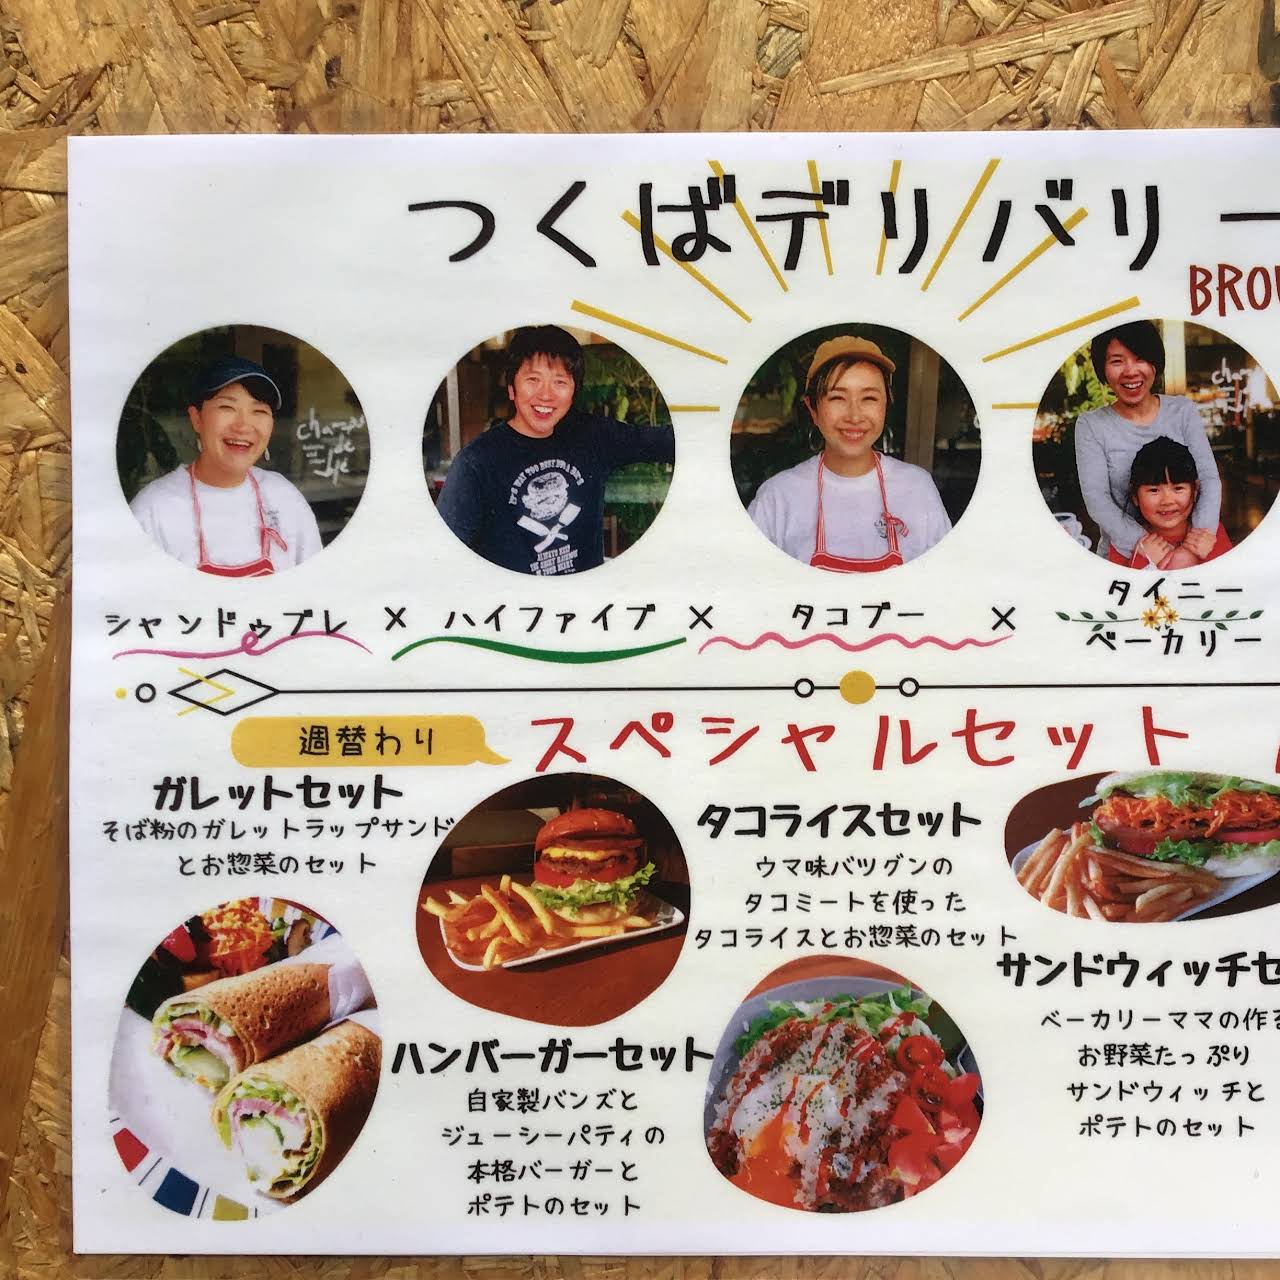 つくばデリバリー
BROU
シャンドゥブレ × ハイファイブ × タコブー × タイニー
ベーカリー
週替わり スペシャルセット
ガレットセット
そば粉のガレットラップサンド
とお惣菜のセット
ハンバーガーセット
自家製バンズと
ジューシーパティの
本格バーガーと
ポテトのセット
タコライスセット
ウマ味バツグンの
タコミートを使った
タコライスとお惣菜のセット
サンドウィッチセ
ベーカリーママの作る
お野菜たっぷり
サンドウィッチと
ポテトのセット